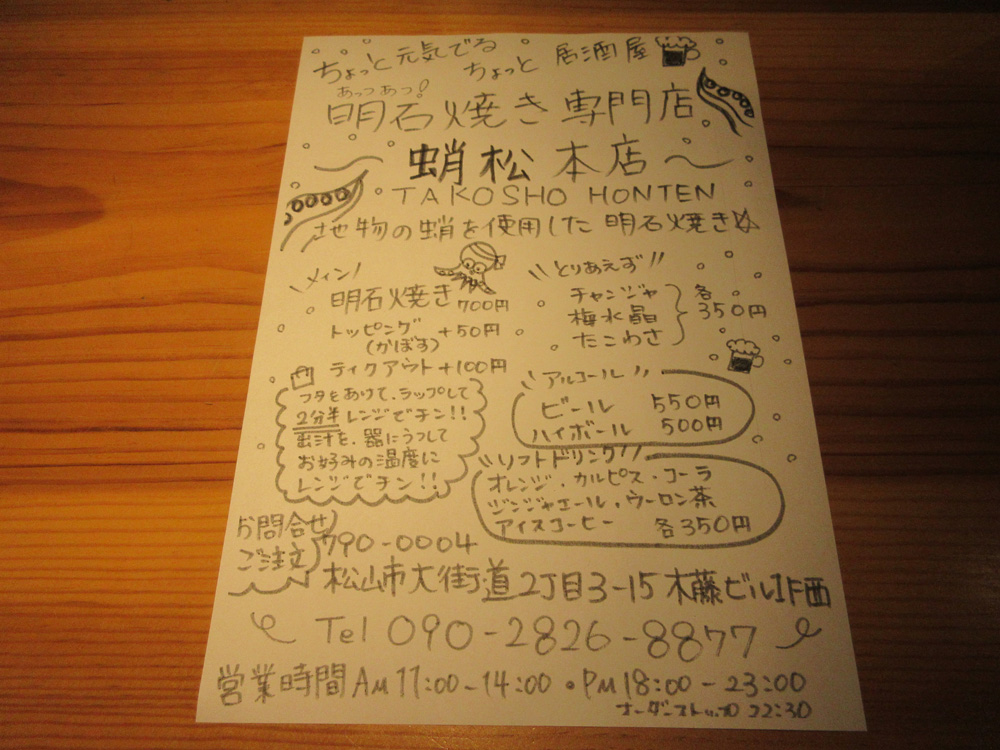 ちょっと元気でる
ちょっと 居酒屋
あっつあつ!
明石焼き専門店
蛸松本店
TAKOSHO HONTEN
地物の蛸を使用した明石焼き☆
メイン!
明石焼き 700円
トッピング +50円
(かぼす)
テイクアウト +100円
フタをあけて、ラップして
2分半レンジでチン!!
出汁を、器にうつして
お好みの温度に
レンジでチン!!
とりあえず
チャンジャ
梅水晶
たこわさ
各350円
アルコール
ビール 550円
ハイボール 500円
ソフトドリンク
オレンジ・カルピス・コーラ
ジンジャエール・ウーロン茶
アイスコーヒー 各350円
お問合せ
ご注文
790-0004
松山市大街道2丁目3-15 木藤ビル1F西
Tel 090-2826-8877
営業時間 AM 11:00-14:00・PM 18:00-23:00
オーダーストップ 22:30